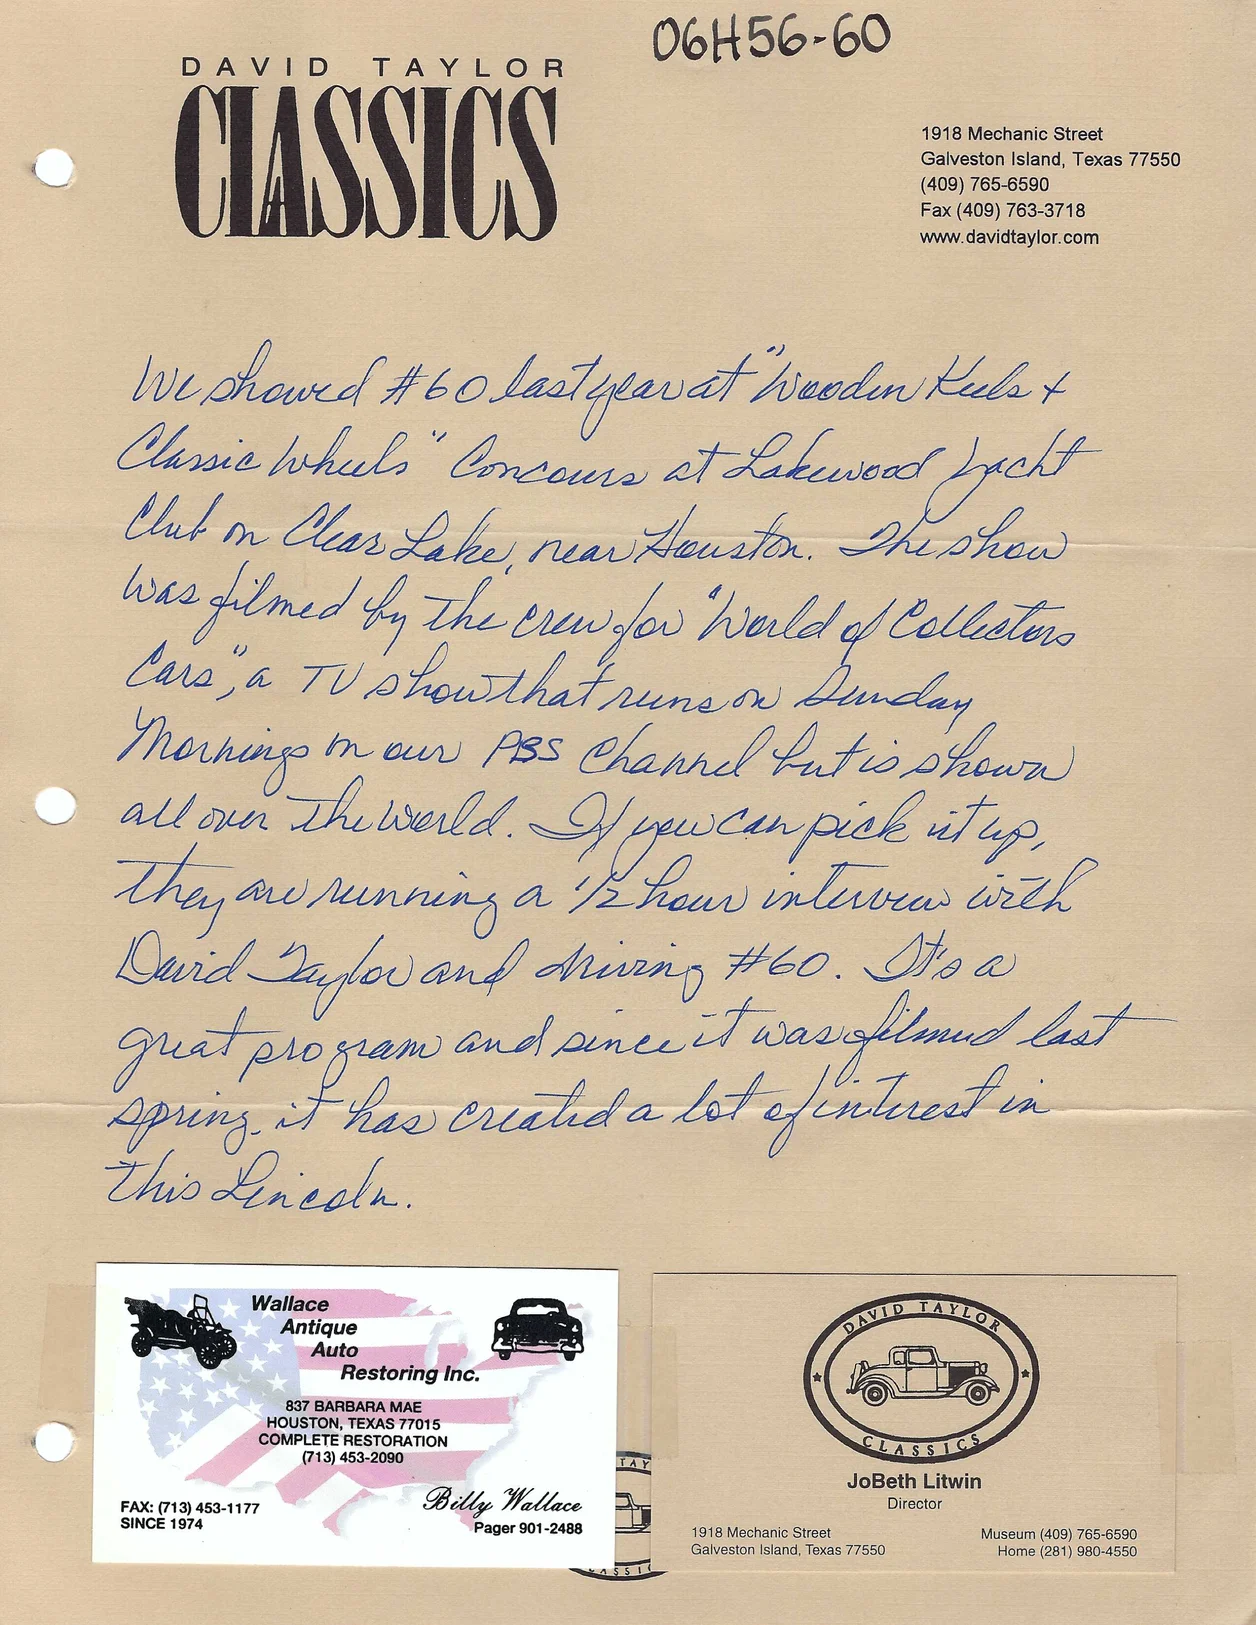 06H56-60
DAVID TAYLOR
CLASSICS
1918 Mechanic Street
Galveston Island, Texas 77550
(409) 765-6590
Fax (409) 763-3718
www.davidtaylor.com
We showed #60 last year at "Wooden Keels +
Classic Wheels" Concours at Lakewood Yacht
Club on Clear Lake, near Houston. The show
was filmed by the crew for "World of Collectors
Cars", a TV show that runs on Sunday
Mornings on our PBS Channel but is shown
all over the world. If you can pick it up,
they are running a 1/2 hour interview with
David Taylor and driving #60. It's a
great program and since it was filmed last
spring, it has created a lot of interest in
this Lincoln.
Wallace
Antique
Auto
Restoring Inc.
837 BARBARA MAE
HOUSTON, TEXAS 77015
COMPLETE RESTORATION
(713) 453-2090
FAX: (713) 453-1177
SINCE 1974
Billy Wallace
Pager 901-2488
DAVID TAYLOR
CLASSICS
JoBeth Litwin
Director
1918 Mechanic Street
Galveston Island, Texas 77550
Museum (409) 765-6590
Home (281) 980-4550